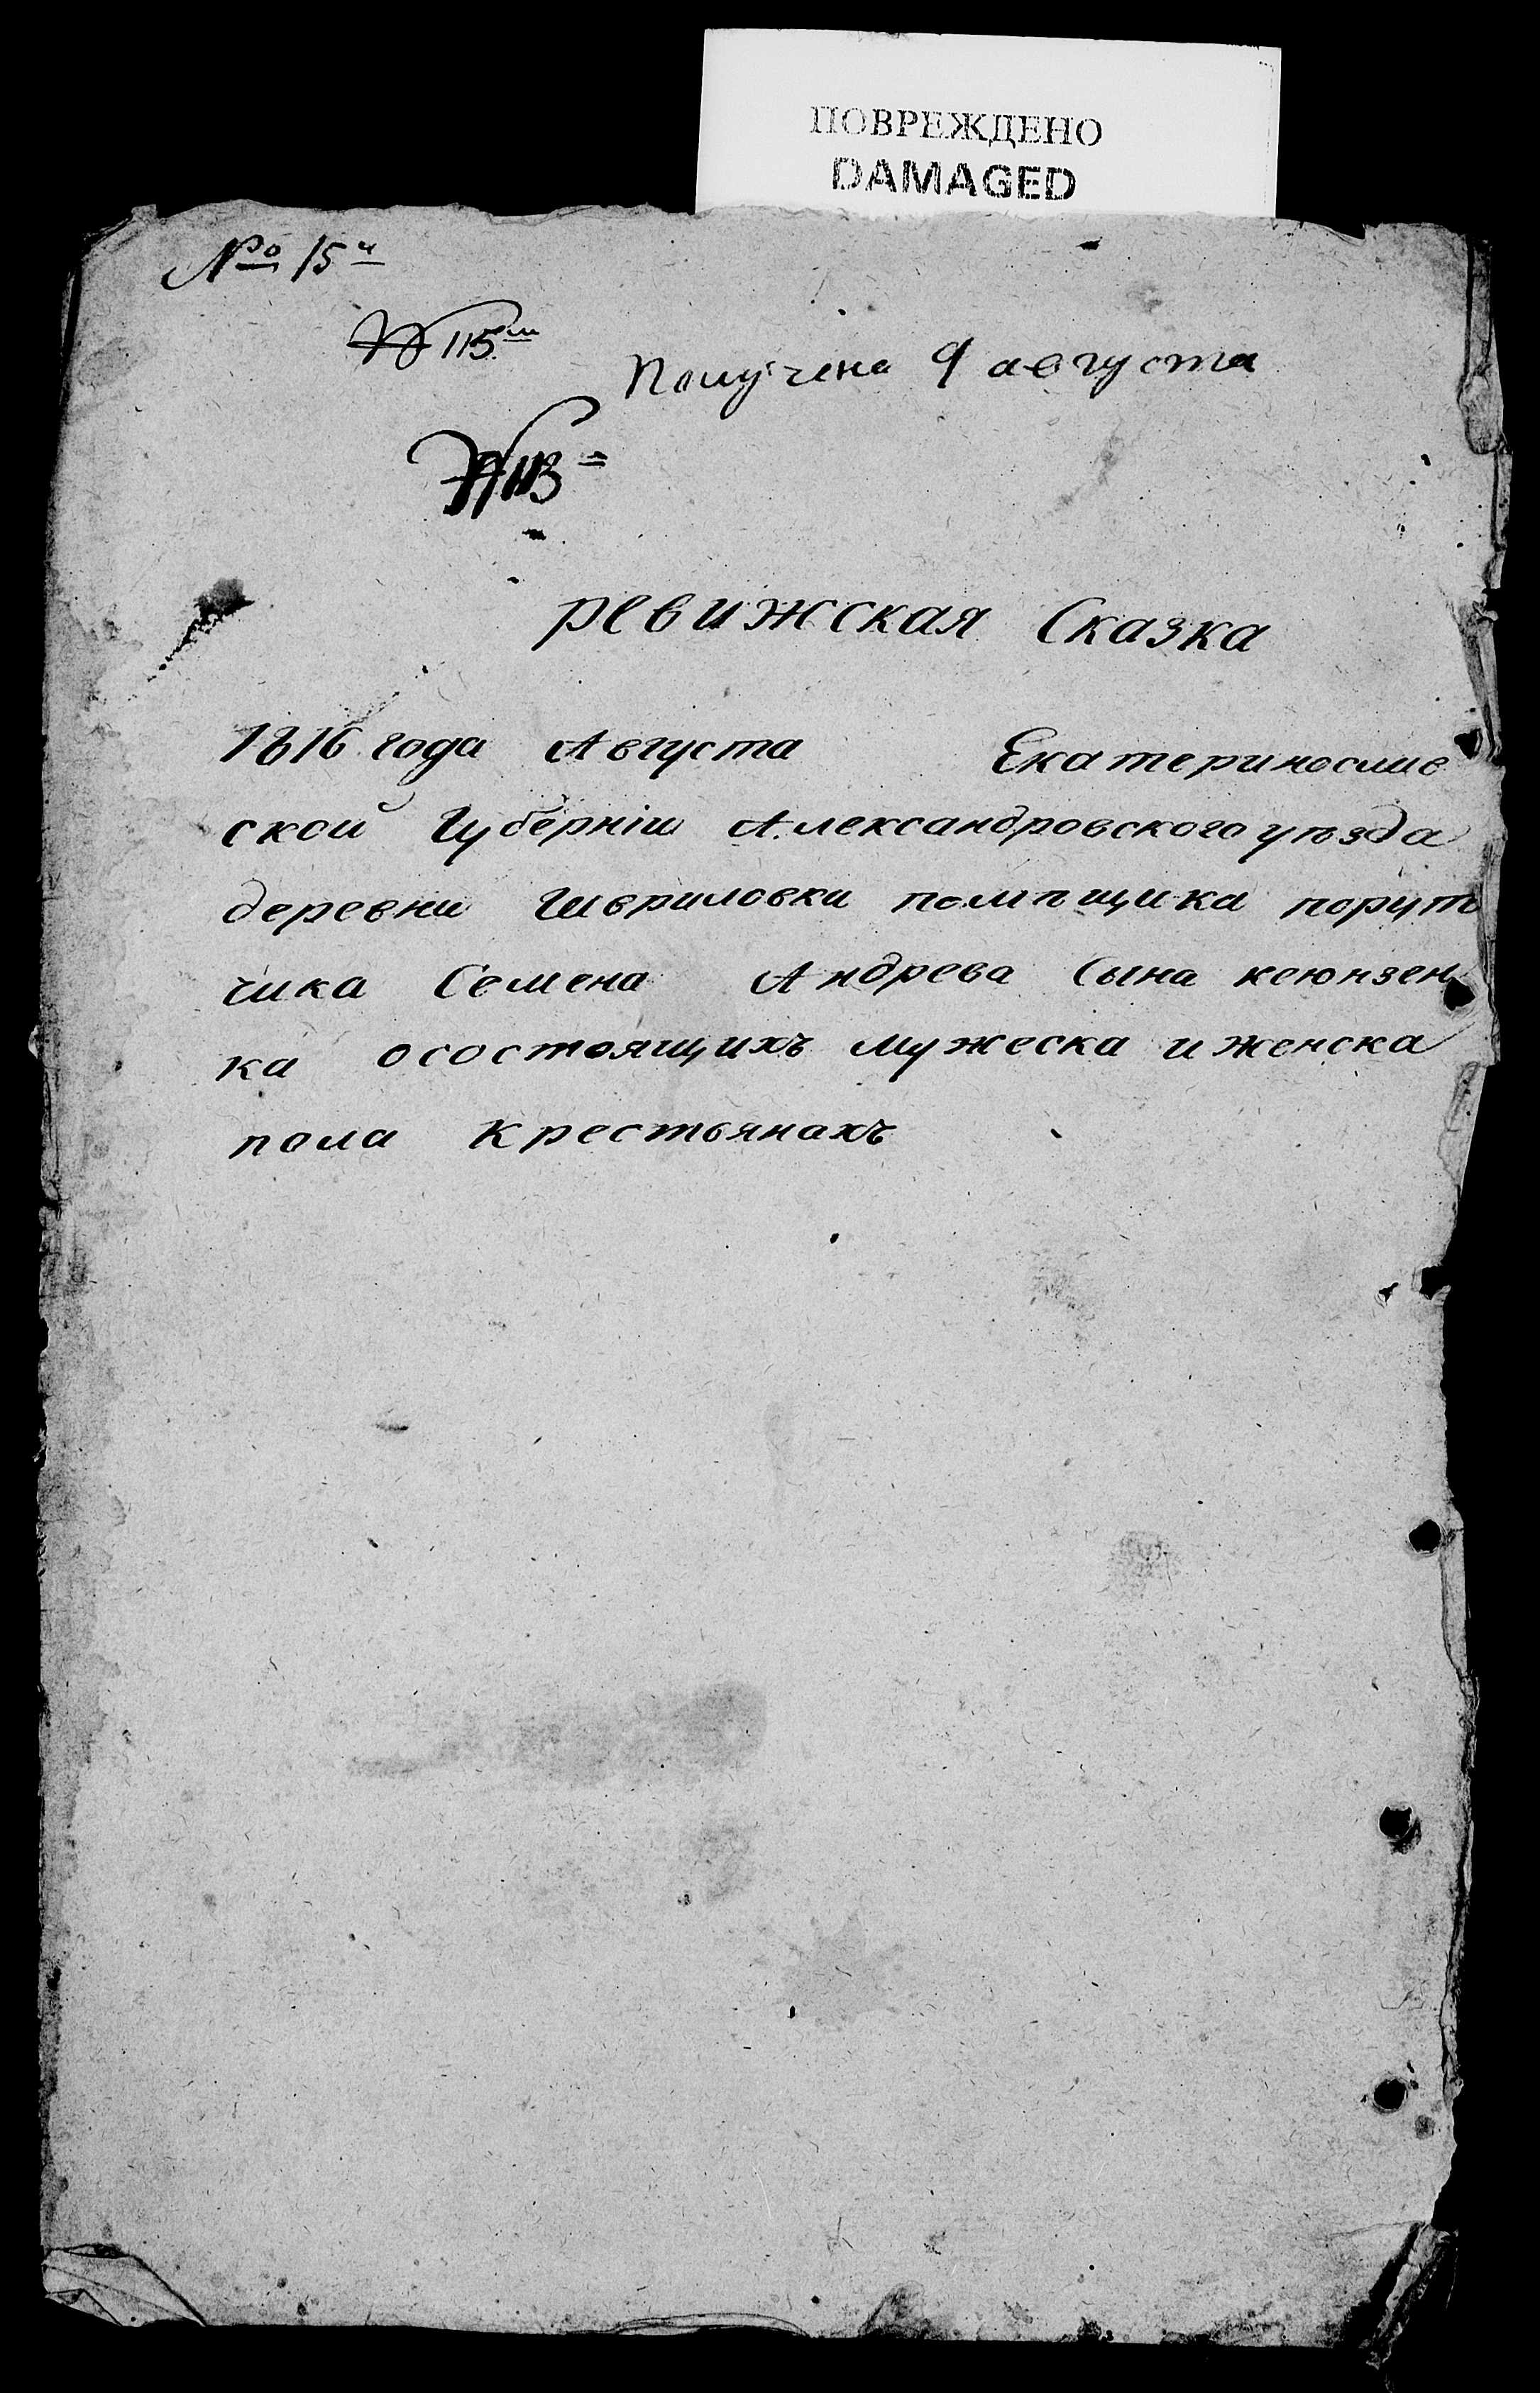 ПОВРЕЖДЕНО
DAMAGED
№ 15й
№ 115
Получена 9 августа
ревижская Сказка
1816 года Августа Екатеринослав
ской Губерніи Александровского уѣзда
деревни Гавриловки помѣщика порут
чика Семена Андрева Сына
ка осостоящихъ мужеска и женска
пола Крестьянахъ